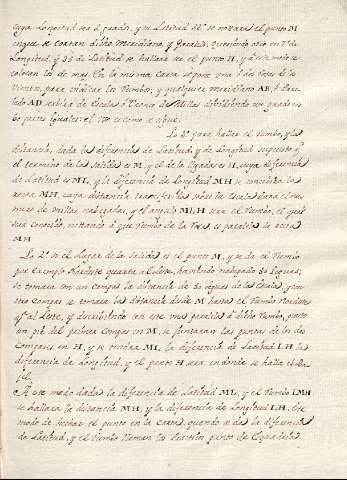 cuya Longitud sea 2 grados, y su Latitud 32.º se notara el punto M
en que se cortan dicho Meridiano, y Paralelo: queriendo otro en 7.º de
Longitud, y 35 de Latitud se hallara ser el punto H, y de este modo se
los de mas. En la misma Carta se pone una, ó dos Rosas de los
Vientos, para señalar los Rumbos, y qualquier meridiano AB, ó Para-
lelo AD servirá de Escala ó Tronco de Millas dividiendo un grado en
60 partes iguales: el uso es como se sigue.
Lo 1.º para hallar el rumbo, y la
distancia, dada la diferencia de Latitud, y de Longitud supuesto q.
el termino de la salida es M, y el de la llegada es H, cuya diferencia
de Latitud es ML, y la diferencia de Longitud MH se concebira la
recta MH, cuya distancia transferida sobre la Escala dara el nu-
mero de millas navegadas, y el angulo MLH sera el Rumbo, el qual
sera conocido, notando á que Rumbo de la Rosa es paralela la recta
MH
Lo 2.º si el lugar de la salida es el punto M, y se da el Rumbo
por exemplo Nordeste quarta al Leste, haviendo navegado 80 Leguas;
se tomara con un compas la distancia de 80 leguas de la Escala, y con
otro Compas se tomara la distancia desde M hasta el Rumbo Nordeste
q.ta al Leste, y describiendo con este una paralela á dicho Rumbo, puesto
un pie del primer Compas en M, se juntaran las puntas de los dos
Compases en H, y se tendra ML la diferencia de Latitud LH la
diferencia de Longitud, y el punto H sera en donde se halla el Ba-
jel.
A este modo dada la diferencia de Latitud ML, y el Rumbo LMH
se hallara la distancia MH, y la diferencia de Longitud LH. Este
modo de hechar el punto en la Carta, quando se da la diferencia
de Latitud, y el Rumbo llaman los Practicos punto de Esquadria.